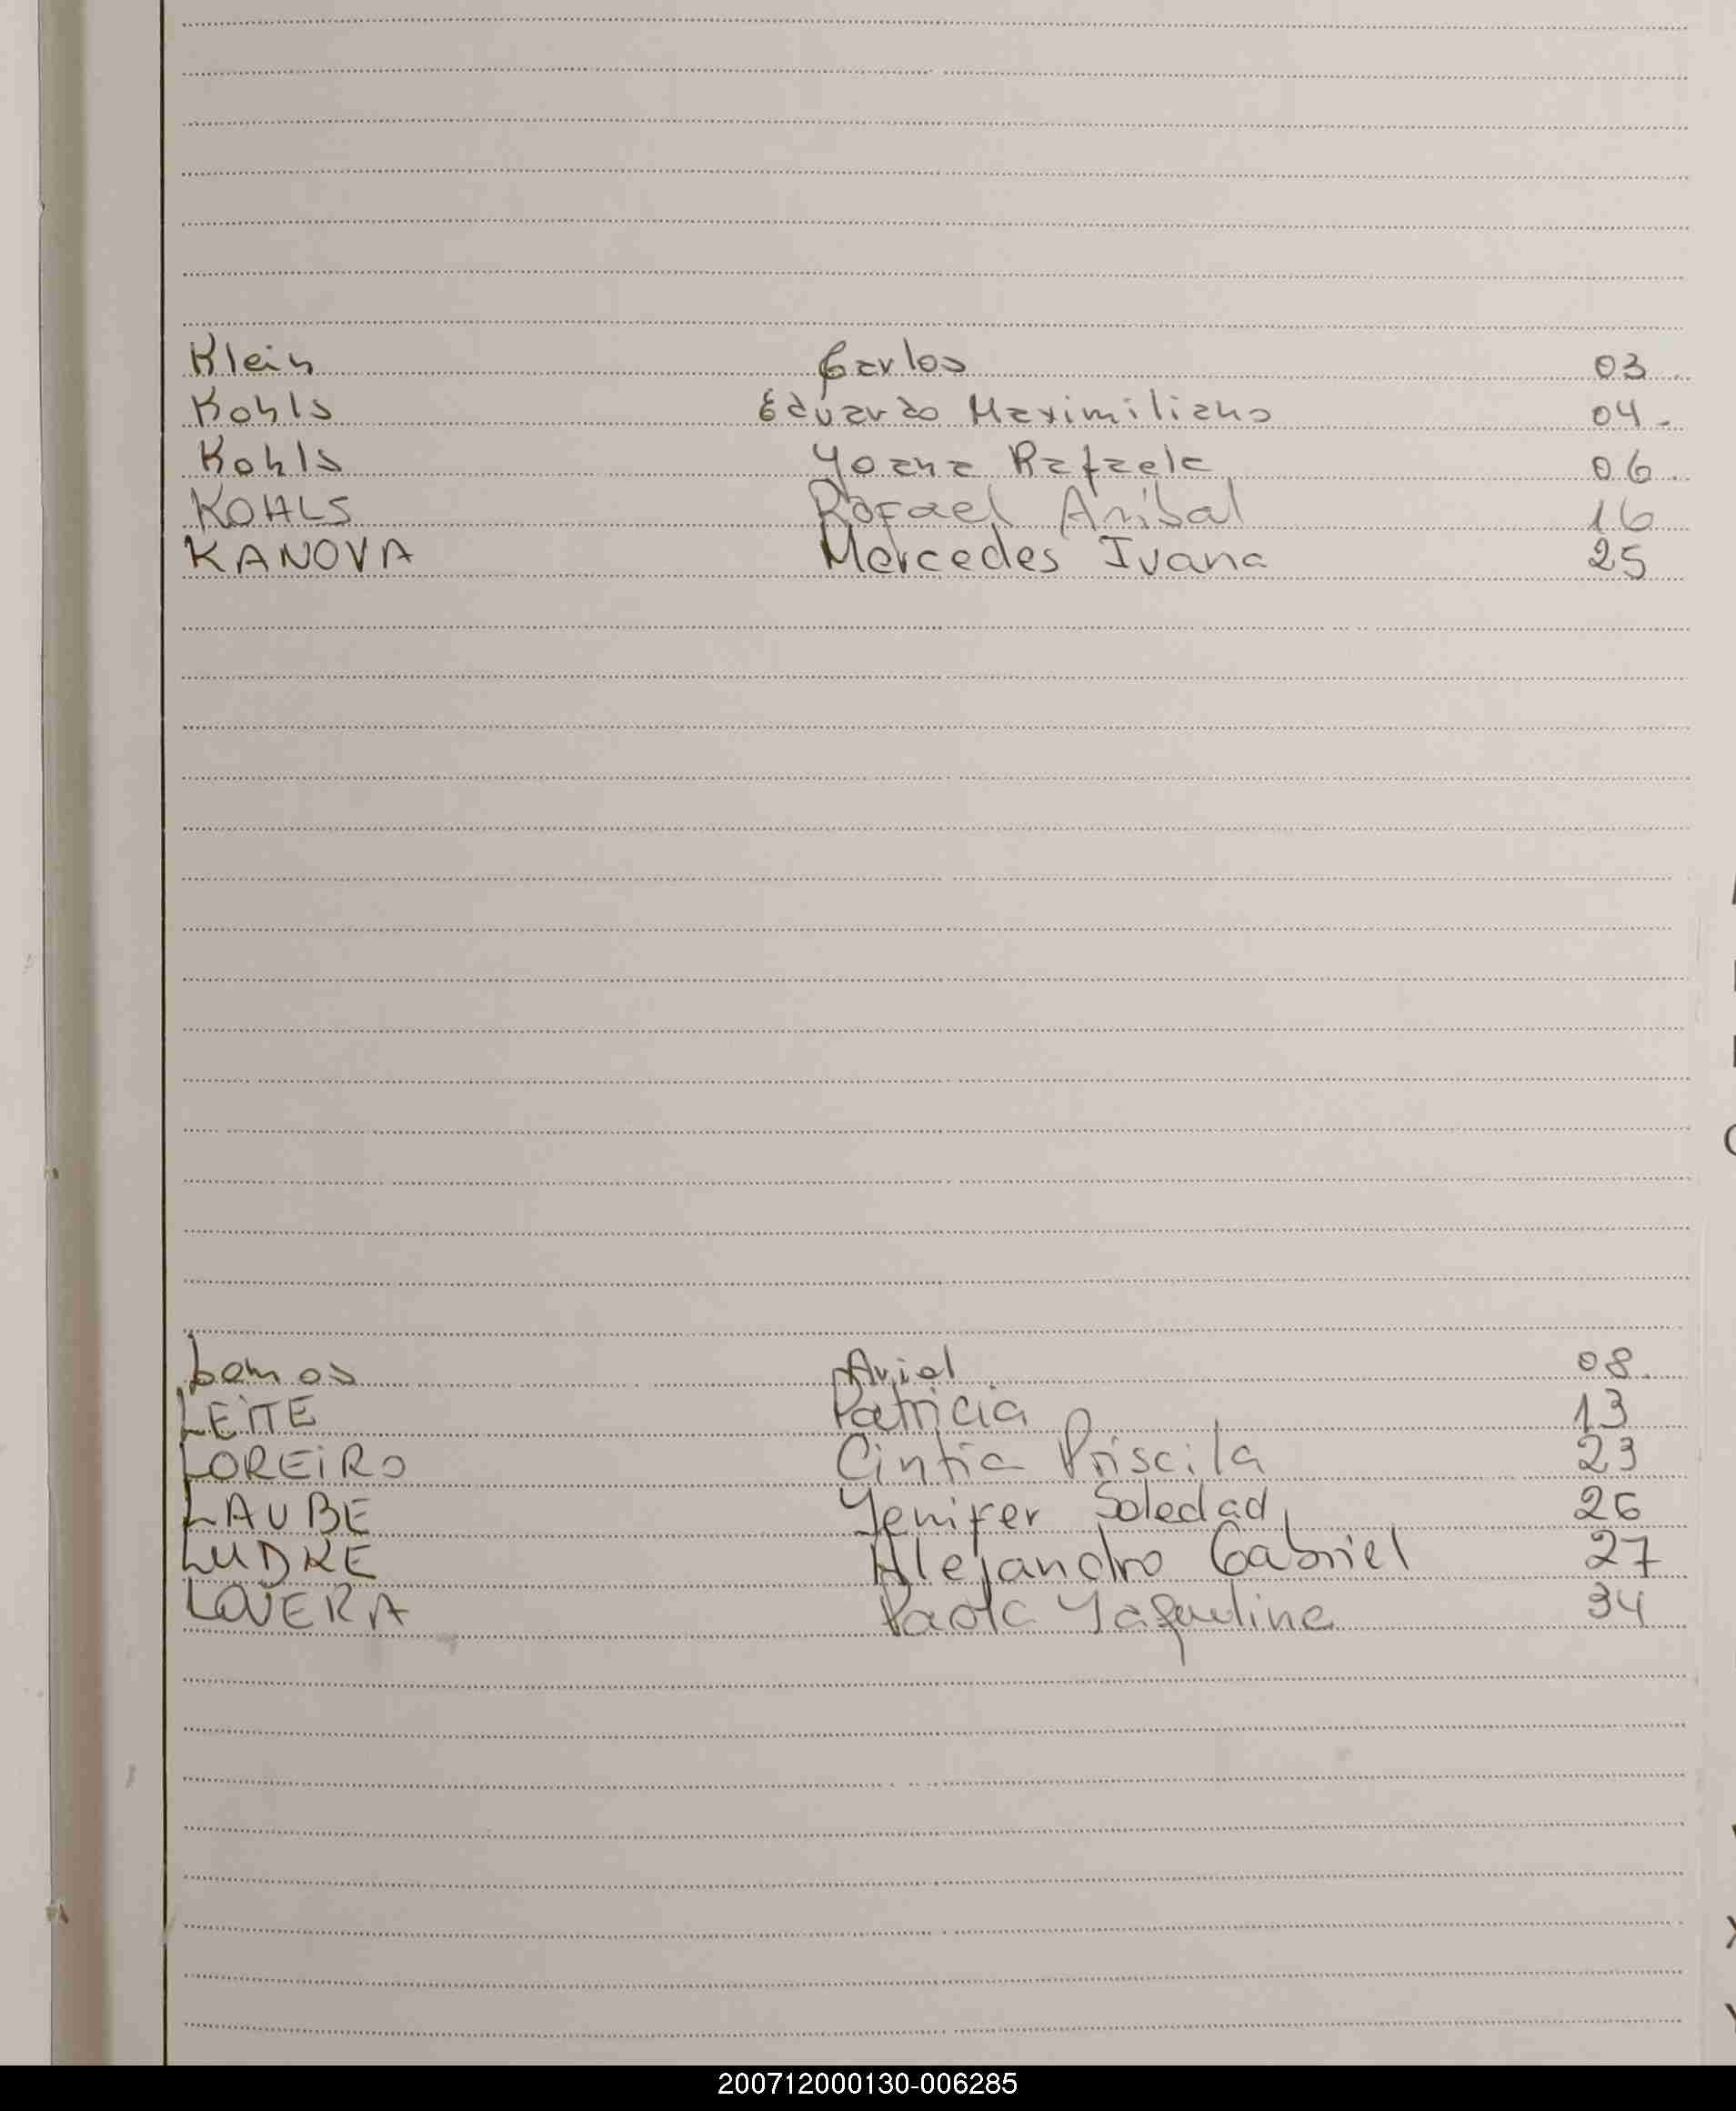 Klein Carlos 03
Kohls Eduardo Maximiliano 04
Kohls Yoana Rafaela 06
KOHLS Rafael Anibal 16
KANOVA Mercedes Ivana 25
Lemos Ariel 08
LEITE Patricia 13
LOREIRO Cintia Priscila 23
LAUBE Yenifer Soledad 26
LUDKE Alejandro Gabriel 27
LOVERA Paola Yaqueline 34
200712000130-006285